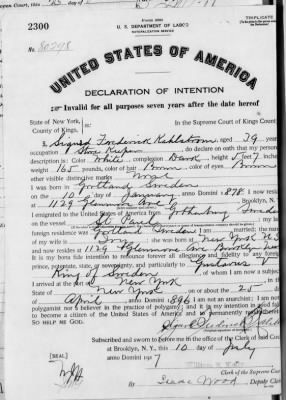 2300
Form 2203
U. S. DEPARTMENT OF LABOR
NATURALIZATION SERVICE
TRIPLICATE
No. 80298
UNITED STATES OF AMERICA
DECLARATION OF INTENTION
Invalid for all purposes seven years after the date hereof
State of New York,
County of Kings,
In the Supreme Court of Kings County
I, Frederick Kahlstrom, aged 39 years,
occupation, do declare on oath that my personal
description is: Color White, complexion Dark, height 5 feet 7 inches,
weight 165 pounds, color of hair Brown, color of eyes Brown
other visible distinctive marks
I was born in Gotland Sweden
on the 10 day of January, anno Domini 1878; I now reside
at 1129 Glenmore Ave, Brooklyn, N.
I emigrated to the United States of America from Gothenburg Sweden
on the vessel St Paul
foreign residence was Gotland Sweden; I am married; the name
of my wife is; she was born in New York
and now resides at 1129 Glenmore Ave Brooklyn
It is my bona fide intention to renounce forever all allegiance and fidelity to any foreign
prince, potentate, state, or sovereignty, and particularly to Gustavus V
King of Sweden, of whom I am now a subject
I arrived at the port of New York
State of New York on or about the 25 day
of April, anno Domini 1896; I am not an anarchist; I am not a
polygamist nor a believer in the practice of polygamy; and it is my intention in good faith
to become a citizen of the United States of America and to permanently reside therein:
SO HELP ME GOD.
Subscribed and sworn to before me in the office of the Clerk of said Court
at Brooklyn, N. Y., this 10 day of July
anno Domini 1917
[SEAL]
Clerk of the Supreme Court
By Isaac Wood, Deputy Clerk